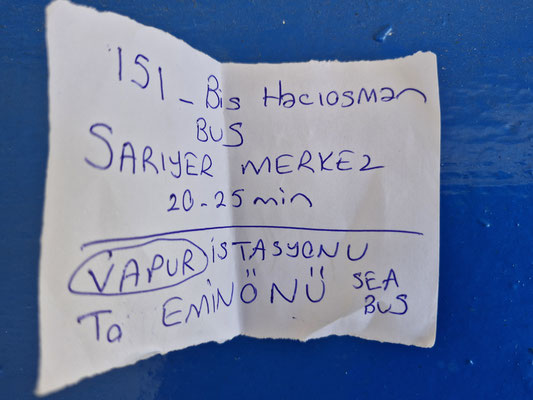 151 - Bis Hacıosman
BUS
SARIYER MERKEZ
20-25 min
VAPUR İSTASYONU
To EMİNÖNÜ SEA
BUS